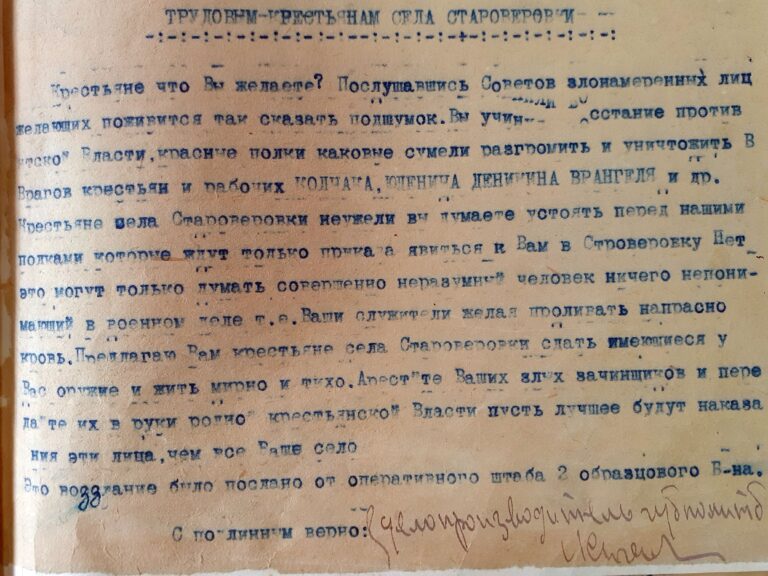 ТРУДОВЫМ-КРЕСТЬЯНАМ СЕЛА СТАРОВЕРОВКИ
Крестьяне что Вы желаете? Послушавшись Советов злонамеренных лиц
желающих поживится так сказать подшумок. Вы учинили восстание против
Власти, красные полки каковые сумели разгромить и уничтожить В
Врагов крестьян и рабочих КОЛЧАКА, ЮДЕНИЧА ДЕНИКИНА ВРАНГЕЛЯ и др.
Крестьяне села Староверовки неужели вы думаете устоять перед нашими
полками которые ждут только приказа явиться к Вам в Строверовку Нет
это могут только думать совершенно неразумный человек ничего непони-
мающий в военном деле т.е. Ваши служители желая проливать напрасно
кровь. Предлагаю Вам крестьяне села Староверовки сдать имеющиеся у
Вас оружие и жить мирно и тихо. Арестуйте Ваших злых зачинщиков и пере
дайте их в руки родной крестьянской Власти пусть лучшее будут наказа
ния эти лица, чем все Ваше село
Это воззвание было послано от оперативного штаба 2 образцового Б-на.
С подлинным верно: делопроизводитель губполитб